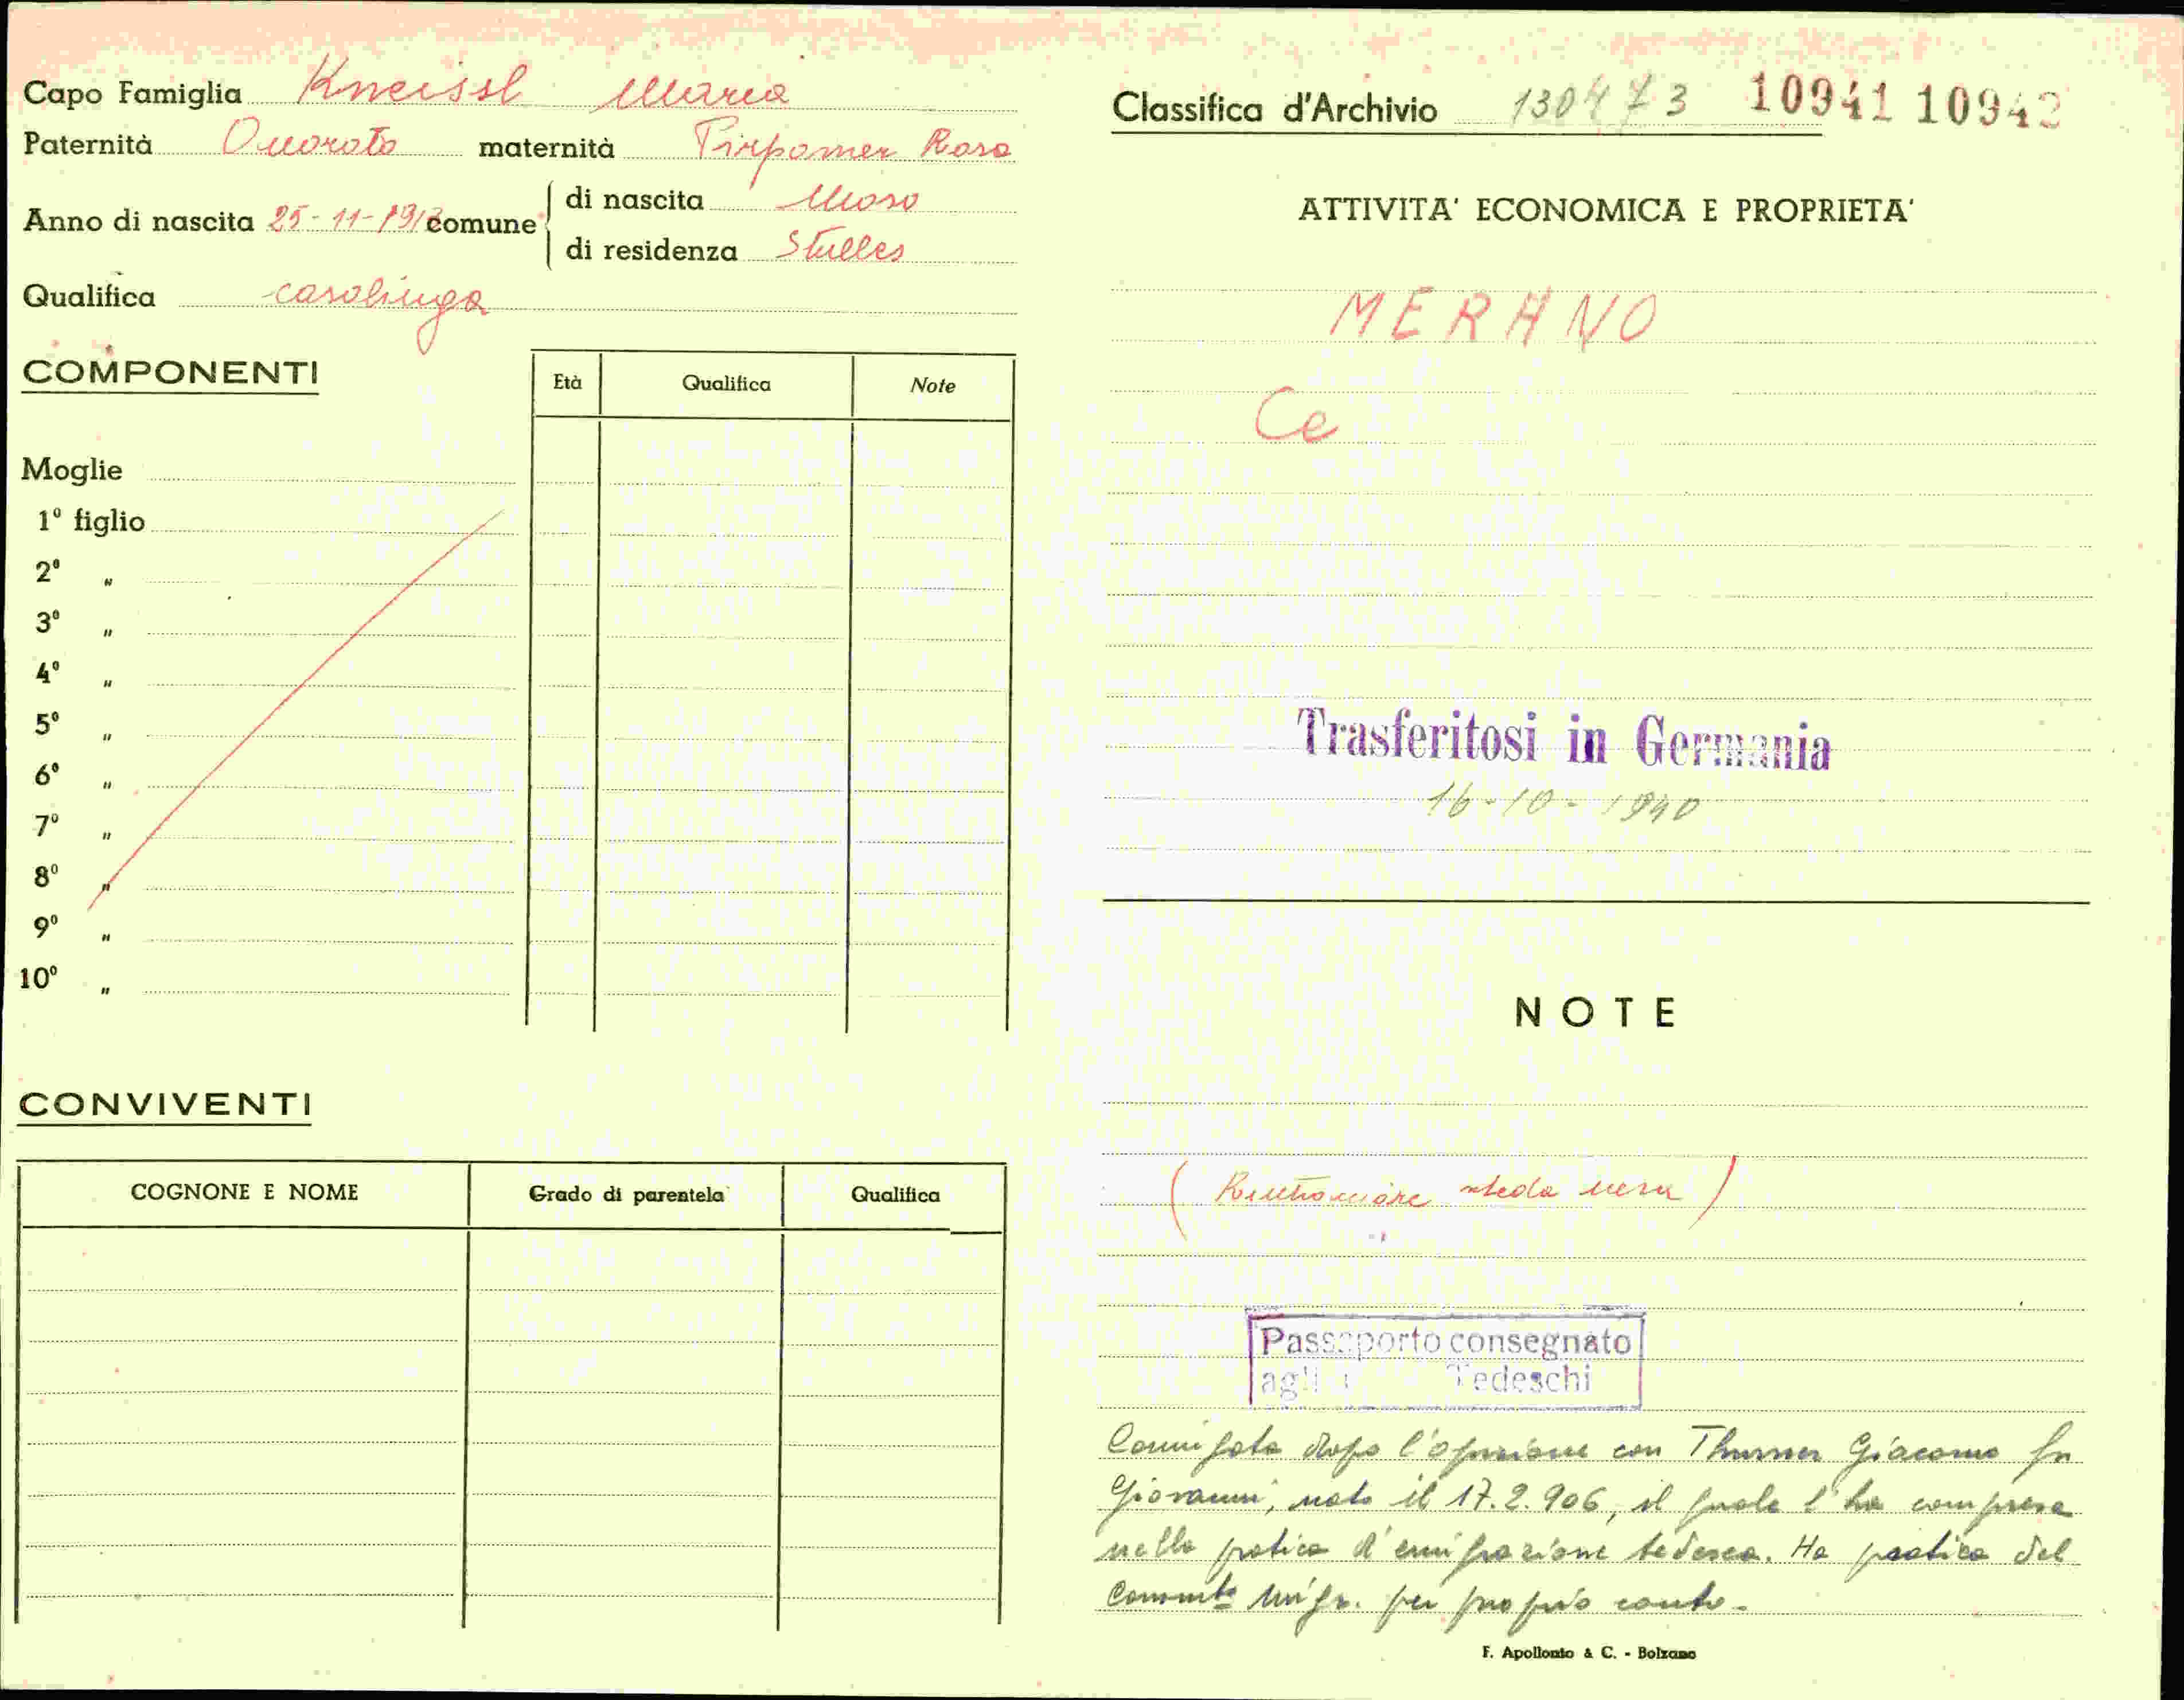 Capo Famiglia Kneissl Maria
Paternità Onorato maternità Pirpamer Rosa
Anno di nascita 25-11-1913 comune di nascita Moso
di residenza Stulles
Qualifica casalinga
COMPONENTI
Età Qualifica Note
Moglie
1º figlio
2º "
3º "
4º "
5º "
6º "
7º "
8º "
9º "
10º "
CONVIVENTI
COGNONE E NOME Grado di parentela Qualifica
Classifica d'Archivio 130473 10941 10942
ATTIVITA' ECONOMICA E PROPRIETA'
MERANO
Ce
Trasferitosi in Germania
16-10-1940
NOTE
( Rintracciare scheda nera )
Passaporto consegnato
agli Tedeschi
Coniugata dopo l'opzione con Thurner Giacomo fu
Giovanni, nato il 17.2.906, il quale l'ha compresa
nella pratica d'emigrazione tedesca. Ha pratica del
Commto Migr. per proprio conto.
F. Apollonio & C. - Bolzano